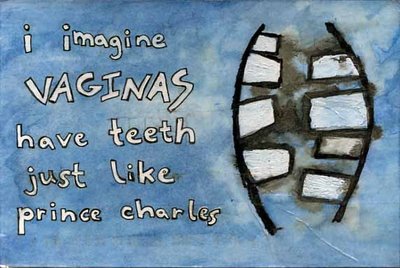 i imagine
VAGINAS
have teeth
just like
prince charles